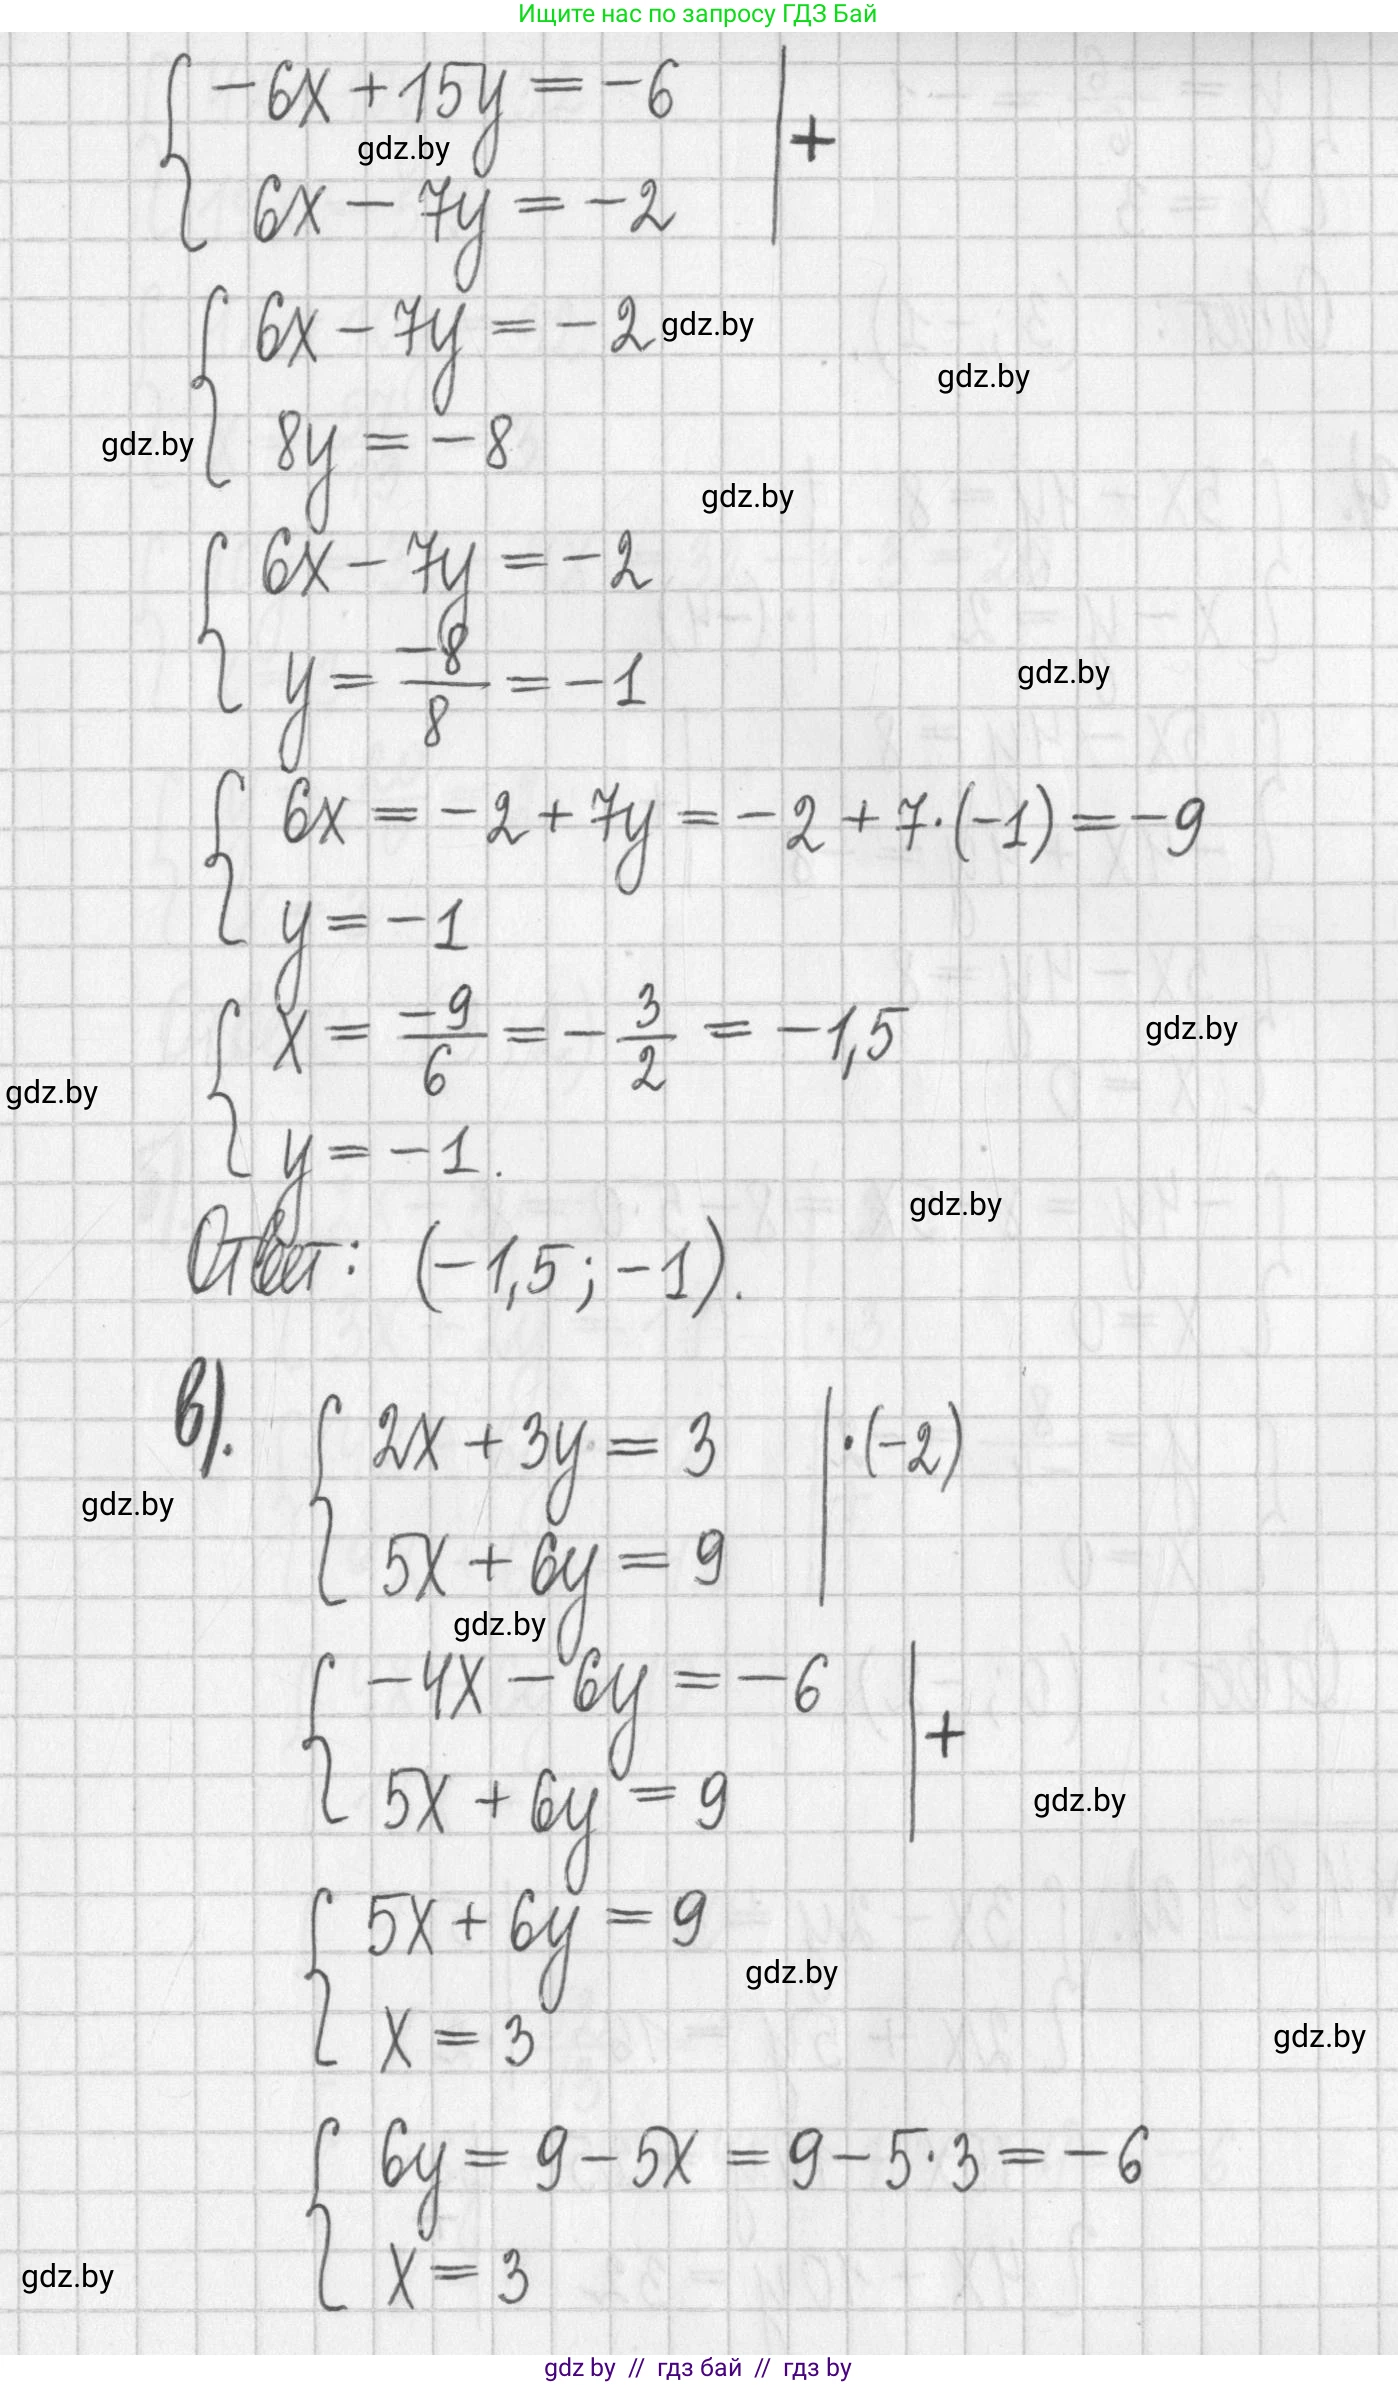 Ищите нас по запросу ГДЗ Бай
-6x + 15y = -6 | +
gdz.by
6x - 7y = -2
6x - 7y = -2
gdz.by
gdz.by
8y = -8
gdz.by
gdz.by
6x - 7y = -2
y = -8/8 = -1
gdz.by
6x = -2 + 7y = -2 + 7·(-1) = -9
y = -1
x = -9/6 = -3/2 = -1,5
gdz.by
gdz.by
y = -1.
gdz.by
Ответ: (-1,5; -1).
в). 2x + 3y = 3 | ·(-2)
gdz.by
5x + 6y = 9
gdz.by
-4x - 6y = -6 | +
5x + 6y = 9
gdz.by
5x + 6y = 9
gdz.by
x = 3
gdz.by
6y = 9 - 5x = 9 - 5·3 = -6
x = 3
gdz.by
gdz by // гдз бай // гдз by